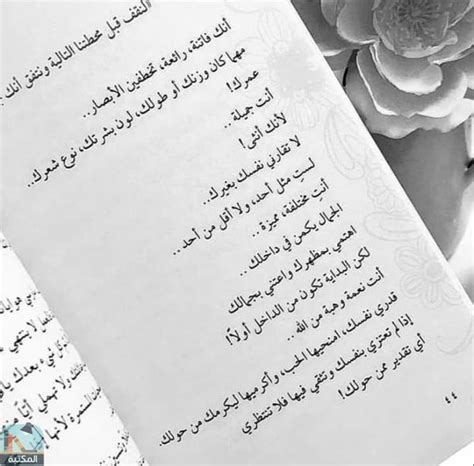 لنقف قبل محطتنا التالية ونتفق أنك
أنك فاتنة، رائعة، تخطفين الأبصار..
مهما كان وزنك أو طولك، لون بشرتك، نوع شعرك..
عمرك!
أنت جميلة..
لأنك أنثى!
لا تقارني نفسك بغيرك..
لستِ مثل أحد، ولا أقل من أحد..
أنتِ مختلفة، مميزة..
الجمال يكمن في داخلك..
اهتمي بمظهرك واعتني بجمالك
لكن البداية تكون من الداخل أولاً!
أنت نعمة وهبة من الله..
قدري نفسك، امنحيها الحب، وأكرميها ليكرمك من حولك
إذا لم تعتزي بنفسك وتثقي فيها فلا تنتظري
أي تقدير ممن حولك!
٤٤
المكتبة